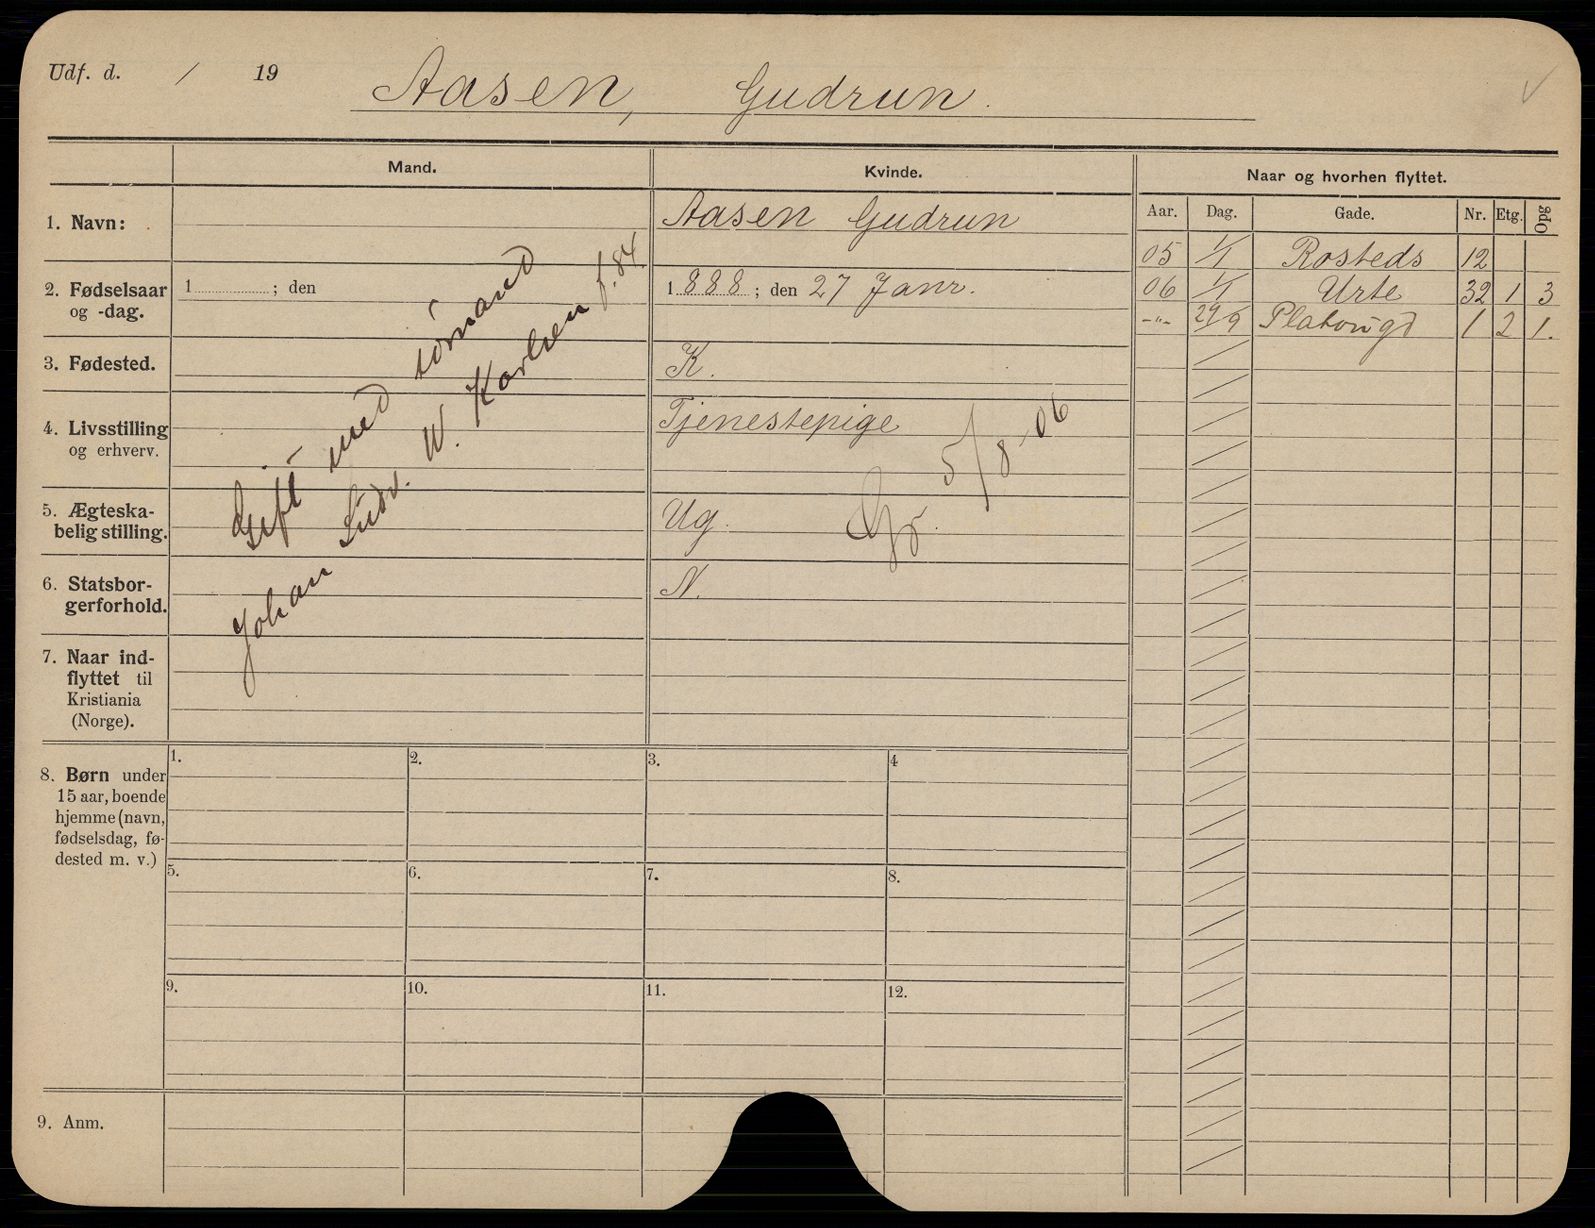 Udf. d. / 19
Aasen, Gudrun.
Mand.
Kvinde.
Naar og hvorhen flyttet.
Aar. Dag. Gade. Nr. Etg. Opg
1. Navn:
Aasen Gudrun
05 1/1 Rosteds 12
2. Fødselsaar
og -dag.
1 ; den
1888 ; den 27 Janr.
06 1/1 Urte 32 1 3
-"- 29/9 1 2 1.
3. Fødested.
K.
4. Livsstilling
og erhverv.
Tjenestepige
5. Ægteska-
belig stilling.
Ug.
5/8-06
6. Statsbor-
gerforhold.
N.
Gift med sømand
Johan Ludv. W. Karlsen f. 84
7. Naar ind-
flyttet til
Kristiania
(Norge).
8. Børn under
15 aar, boende
hjemme (navn,
fødselsdag, fø-
dested m. v.)
1. 2. 3. 4
5. 6. 7. 8.
9. 10. 11. 12.
9. Anm.